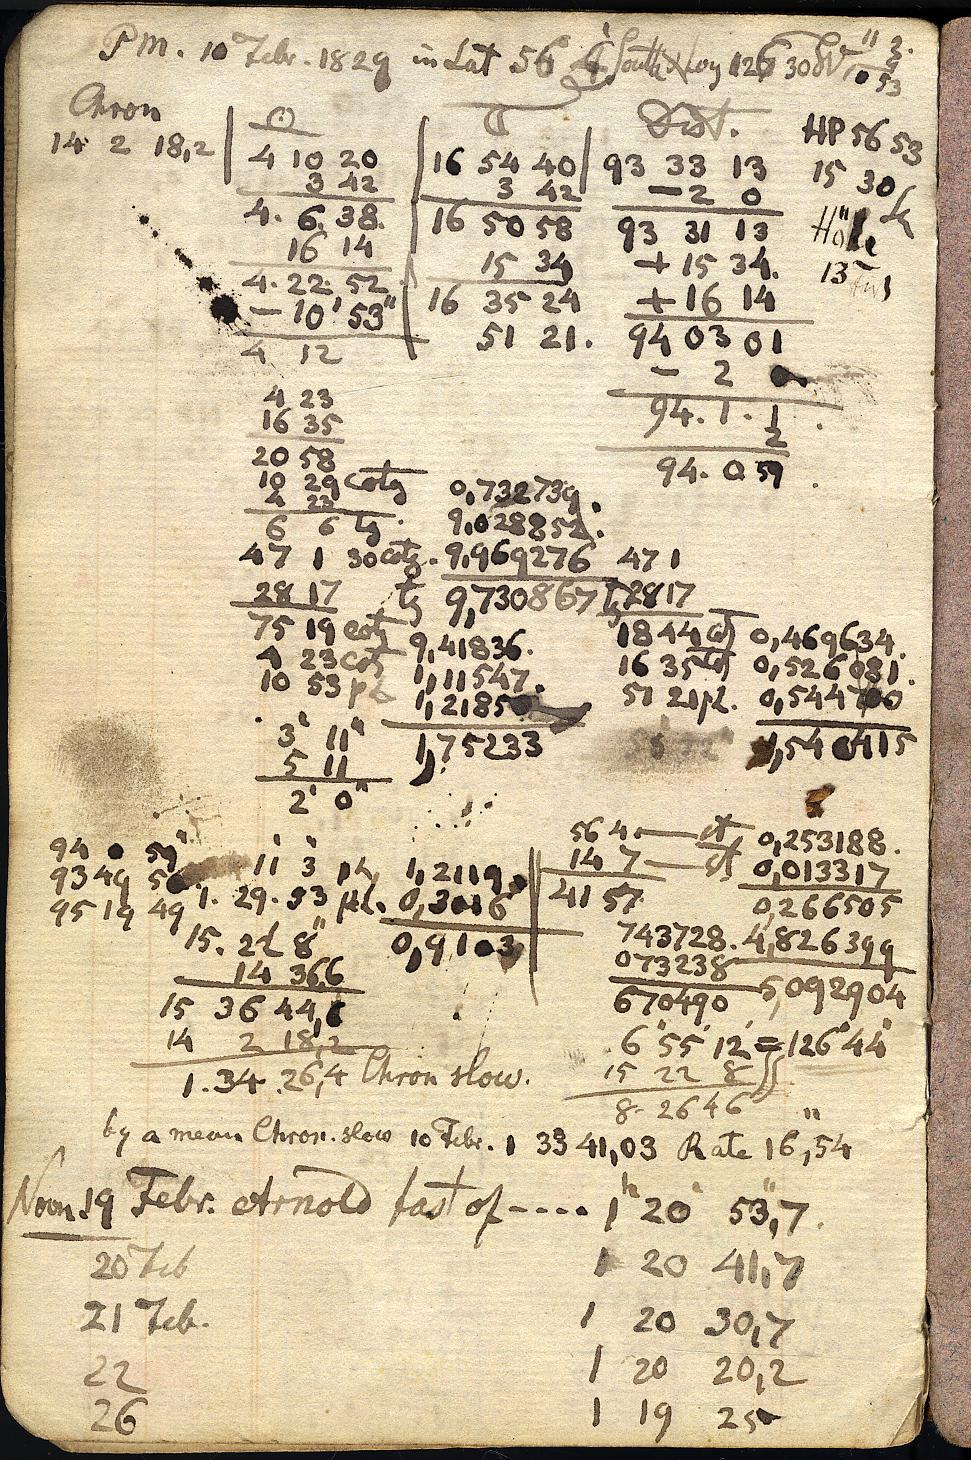 P.M. 10 Febr. 1829 in Lat 56 4 South Long 126 30 W
Chron ☉ ☾ Dist. HP 56 53
14 2 18,2 4 10 20 16 54 40 93 33 13 15 30
3 42 3 42 - 2 0
4. 6. 38. 16 50 58 93 31 13
16 14 15 34 + 15 34.
4. 22. 52 16 35 24 + 16 14
- 10' 53" 51 21. 94 03 01
4 12 - 2
4 23 94. 1. 1
16 35 2
20 58 94. 0 59
10 29 cotg 0,732739
4 23 9,028852.
6 6 tg.
47 1 30 cotg. 9,969276 47 1
28 17 tg 9,730867 tg 2817
75 19 cotg 9,41836. 1844 0,469634.
4 23 cotg 1,11547. 16 35 0,526081.
10 53 pl 1,2185 51 21 pl. 0,544700
3' 11" 1,75233 1,540415
5 11
2' 0"
94 0 59" 11' 3" pl 1,2119 56 4 0,253188.
93 49 56 1. 29. 53 pl. 0,3016 14 7 0,013317
95 19 49 0,9103 41 57 0,266505
15. 22 8" 743728. 4,826399
14 36,6 073238
15 36 44,6 670490 5,092904
14 2 18,2 6 55 12 = 126° 44'
1. 34. 26,4 Chron slow. 15 22 8
8. 26 46
by a mean Chron. slow 10 Febr. 1 33 41,03 Rate 16",54
Noon 19 Febr. Arnold fast of ---- 1h 20' 53",7.
20 Feb 1 20 41,7
21 Feb. 1 20 30,7
22 1 20 20,2
26 1 19 25